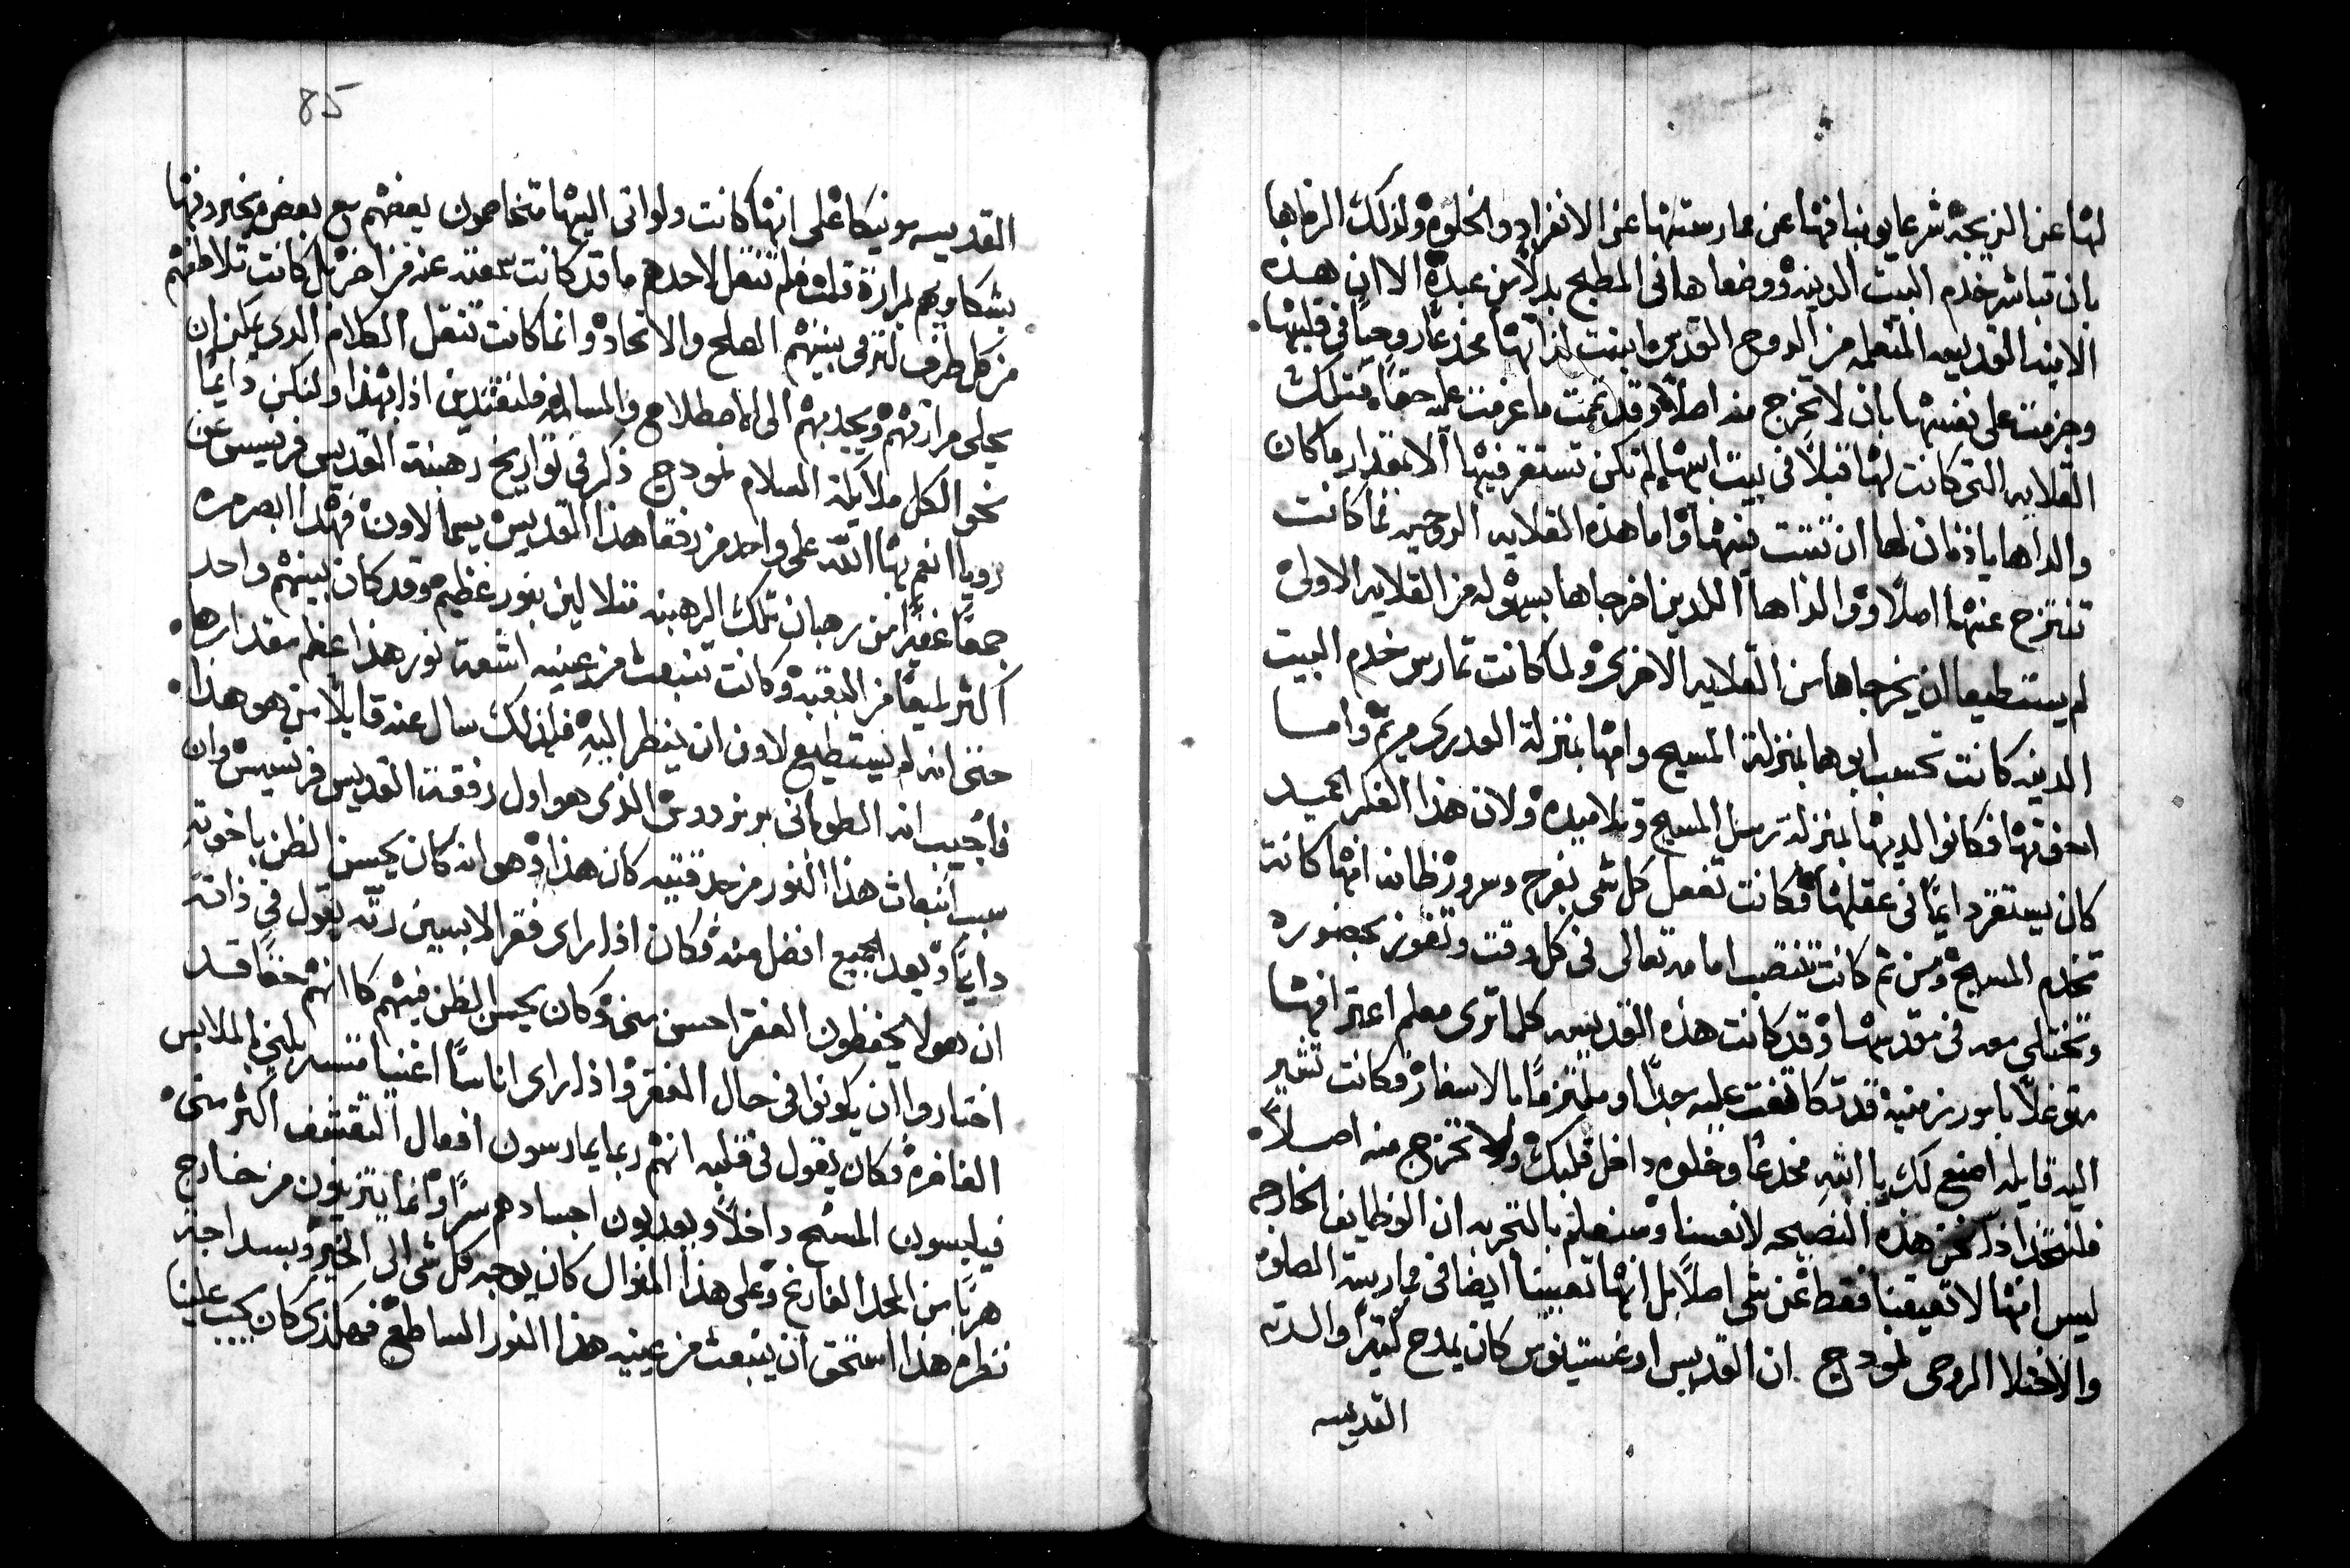 لها عن الزيجه شرعا يوبنا فها عن ممارستها عن الانفراد والخلوه ولذلك الزماها
بان تباشر خدم البيت الدينه ووضعاها في المطبخ بدلاً من عبدة الا ان هده
الابنه القديسه المتعلمه من الروح القدس ابتنت لذاتها مخدعاً روحياً في قلبها
وجزمت على نفسها بان لا تخرج منه اصلاً وقد تممت ما عزمت عليه حقاً فتلك
القلايه التي كانت لها قبلاً في بيت ابيها لم تكن تستقر فيها الا بمقدار ما كان
والداها ياذنان لها ان تثبت فيها واما هذه القلايه الروحيه فما كانت
تنتزح عنها اصلاً ووالداها اللدين اخرجاها بسهوله من القلايه الاولى
لم يستطيعا ان يخرجاها من القلايه الاخرى ولما كانت تمارس خدم البيت
الدينه كانت تحسب ابوها بمنزلة المسيح وامها بمنزلة العدرى مريم واما
اخوتها فكانوا لديها بمنزلة رسل المسيح وتلاميده ولان هذا الفكر الحميد
كان يستقر دايماً في عقلها فكانت تفعل كل شي بفرح وسرور ظانه انها كانت
تخدم المسيح ومن ثم كانت تنتصب امامه تعالى في كل وقت وتفوز بحضوره
وتختلي معه في مقدسها وقد كانت هذه القديسه كلما ترى معلم اعترافها
متوغلاً بامور زمنيه قد تكاثفت عليه جداً او ملتزماً بالاسفار فكانت تشير
اليه قايله اصنع لك يا ابتِ مخدعاً وخلوه داخل قلبك ولا تخرج منه اصلاً
فلنتخذ اذاً نحن هذه النصيحه لانفسنا وسنعلم بالتجربه ان الوظايف الخارجه
ليس انها لا تعيقنا فقط عن شي اصلاً بل انها تعيننا ايضا في ممارسة الصلوه
والاختلا الروحي نمودج ان القديس اوغسطينوس كان يمدح كثيراً والدته
القديسه
85
القديسه مونيكا على انها كانت ولو اتى اليها متخاصمون بعضهم مع بعض
بشكاويهم لمرارة قلب فلم تنقل لاحدهم ما قد كانت سمعته عنه من اخر بل كانت تلاطفهم
من كل طرف لترمي بينهم الصلح والاتحاد وانما كانت تنقل الكلام الدي يمكن ان
يحلي مرارتهم ويجدبهم الى الاصطلاح والمسالمه فلنقتدين اذا بهذا ولنكن دايماً
نحو الكل ملايكة السلام نمودج ذكر في تواريخ رهبنة القديس فرنسيس عن
رويا انعم بها الله على واحد من رفقا هذا القديس يسما لاون فهدا ابصر مره
جمعاً غفيراً من رهبان تلك الرهبنه تتلالين بنور عظيم وقد كان بينهم واحد
اكثر لميعاً من البقيه وكانت تنبعث من عينيه اشعة نور هذا عظم مقدارها
حتى انه لم يستطيع لاون ان ينظر اليه فلذلك سال عنه قايلاً من هو هذا
فاجيب انه الطوباني برنردوس الذي هو اول رفقة القديس فرنسيس وان
سبب انبعاث هذا النور من حدقتيه كان هذا وهو انه كان يحسن الظن باخوته
دايماً ويعد الجميع افضل منه فكان اذا راى فقرا لابسين رثه يقول في ذاته
ان هولا يحفظون الفقر احسن مني وكان يحسن الظن فيهم كانهم حقاً قد
اختاروا ان يكونوا في حال الفقر واذا راى اناساً اغنيا متسربلين بالملابس
الفاخره فكان يقول في قلبه انهم ربما يمارسون افعال التقشف اكثر مني
فيلبسون المسح داخلاً ويعدبون اجسادهم سراً وانما يتزينون من خارج
هرباً من المجد الفارغ وعلى هذا المنوال كان يوجه كل شي الى الخير وبسداجة
نظره هذا استحق ان ينبعث من عينيه هذا النور الساطع فهكذى كان يجب علينا